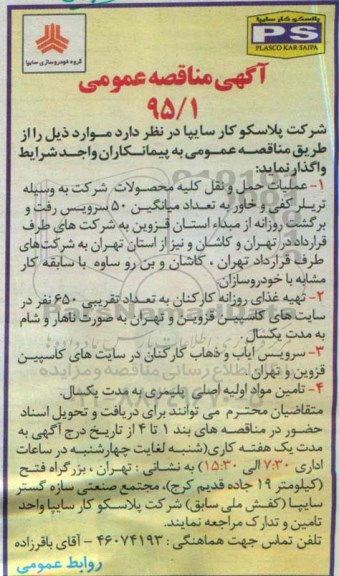 پلاسکو کار سایپا
PS
PLASCO KAR SAIPA
گروه خودروسازی سایپا
آگهی مناقصه عمومی
۹۵/۱
شرکت پلاسکو کار سایپا در نظر دارد موارد ذیل را از
طریق مناقصه عمومی به پیمانکاران واجد شرایط
واگذار نماید:
۱- عملیات حمل و نقل کلیه محصولات شرکت به وسیله
تریلر کفی و خاور به تعداد میانگین ۵۰ سرویس رفت و
برگشت روزانه از مبداء استان قزوین به شرکت های طرف
قرارداد در تهران و کاشان و نیز از استان تهران به شرکت‌های
طرف قرارداد تهران ، کاشان و بن رو ساوه با سابقه کار
مشابه با خودروسازان.
۲- تهیه غذای روزانه کارکنان به تعداد تقریبی ۶۵۰ نفر در
سایت های کاسپین قزوین و تهران به صورت ناهار و شام
به مدت یکسال.
۳- سرویس ایاب و ذهاب کارکنان در سایت های کاسپین
قزوین و تهران
۴- تامین مواد اولیه اصلی پلیمری به مدت یکسال.
متقاضیان محترم می توانند برای دریافت و تحویل اسناد
حضور در مناقصه های بند ۱ تا ۴ از تاریخ درج آگهی به
مدت یک هفته کاری(شنبه لغایت چهارشنبه در ساعات
اداری ۷:۳۰ الی ۱۵:۳۰) به نشانی : تهران ، بزرگراه فتح
(کیلومتر ۱۹ جاده قدیم کرج)، مجتمع صنعتی سازه گستر
سایپا (کفش ملی سابق) شرکت پلاسکو کار سایپا واحد
تامین و تدارک مراجعه نمایند.
تلفن تماس جهت هماهنگی : ۴۶۰۷۴۱۹۳ - آقای باقرزاده
روابط عمومی